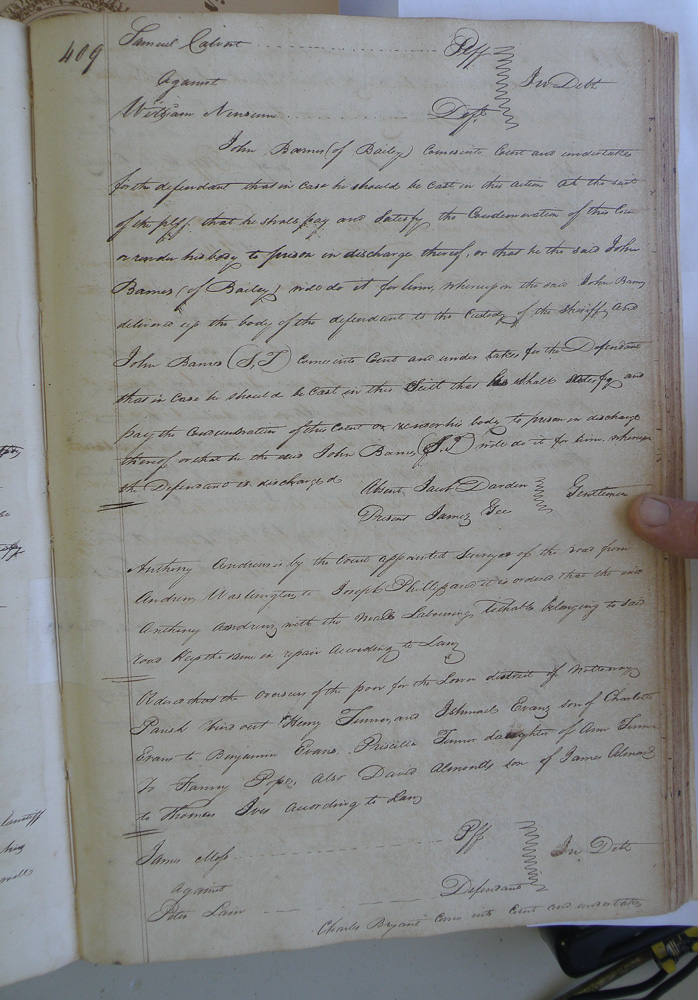 409
Samuel Calvert Plff
Against In Debt
William Newsum Deft
John Barnes (of Bailey) Comes into Court and undertakes
for the defendant that in Case he should be Cast in this action at the suit
of the plff. that he shall pay and Satisfy the Condemnation of this Cou
or render his body to prison in discharge thereof, or that he the said John
Barnes (of Bailey) will do it for him, whereupon the said John Barnes
delivered up the body of the defendant to the Custody of the Sheriff, and
John Barnes (S,T) Comes into Court and under takes for the Defendant
that in Case he should be Cast in this Suit that he shall satisfy and
pay the Condemnation of this Court or render his body to prison in discharge
thereof or that he the said John Barnes (S.T) will do it for him, whereupon
the Defendant is discharged
Absent, Jacob Darden Gentlemen
Present James Gee
Anthony Andrews is by the Court appointed Surveyor of the road from
Andrew Washingtons to Joseph Phillips and it is ordered that the said
Anthony Andrews with the Male Labouring Tithable belonging to said
road keep the same in repair According to Law
Ordered that the overseers of the poor for the Lower district of Nottoway
Parish bind out Henry Turner, and Ishmael Evans son of Charlotte
Evans to Benjamin Evans. Priscilla Turner daughter of Ann Turner
To Fanny Pope, also David Almonds son of James Almond
to Thomas Ives according to Law
James Moss Plff
against In Debt
Peter Lain Defendant
Charles Bryant Come into Court and undertakes